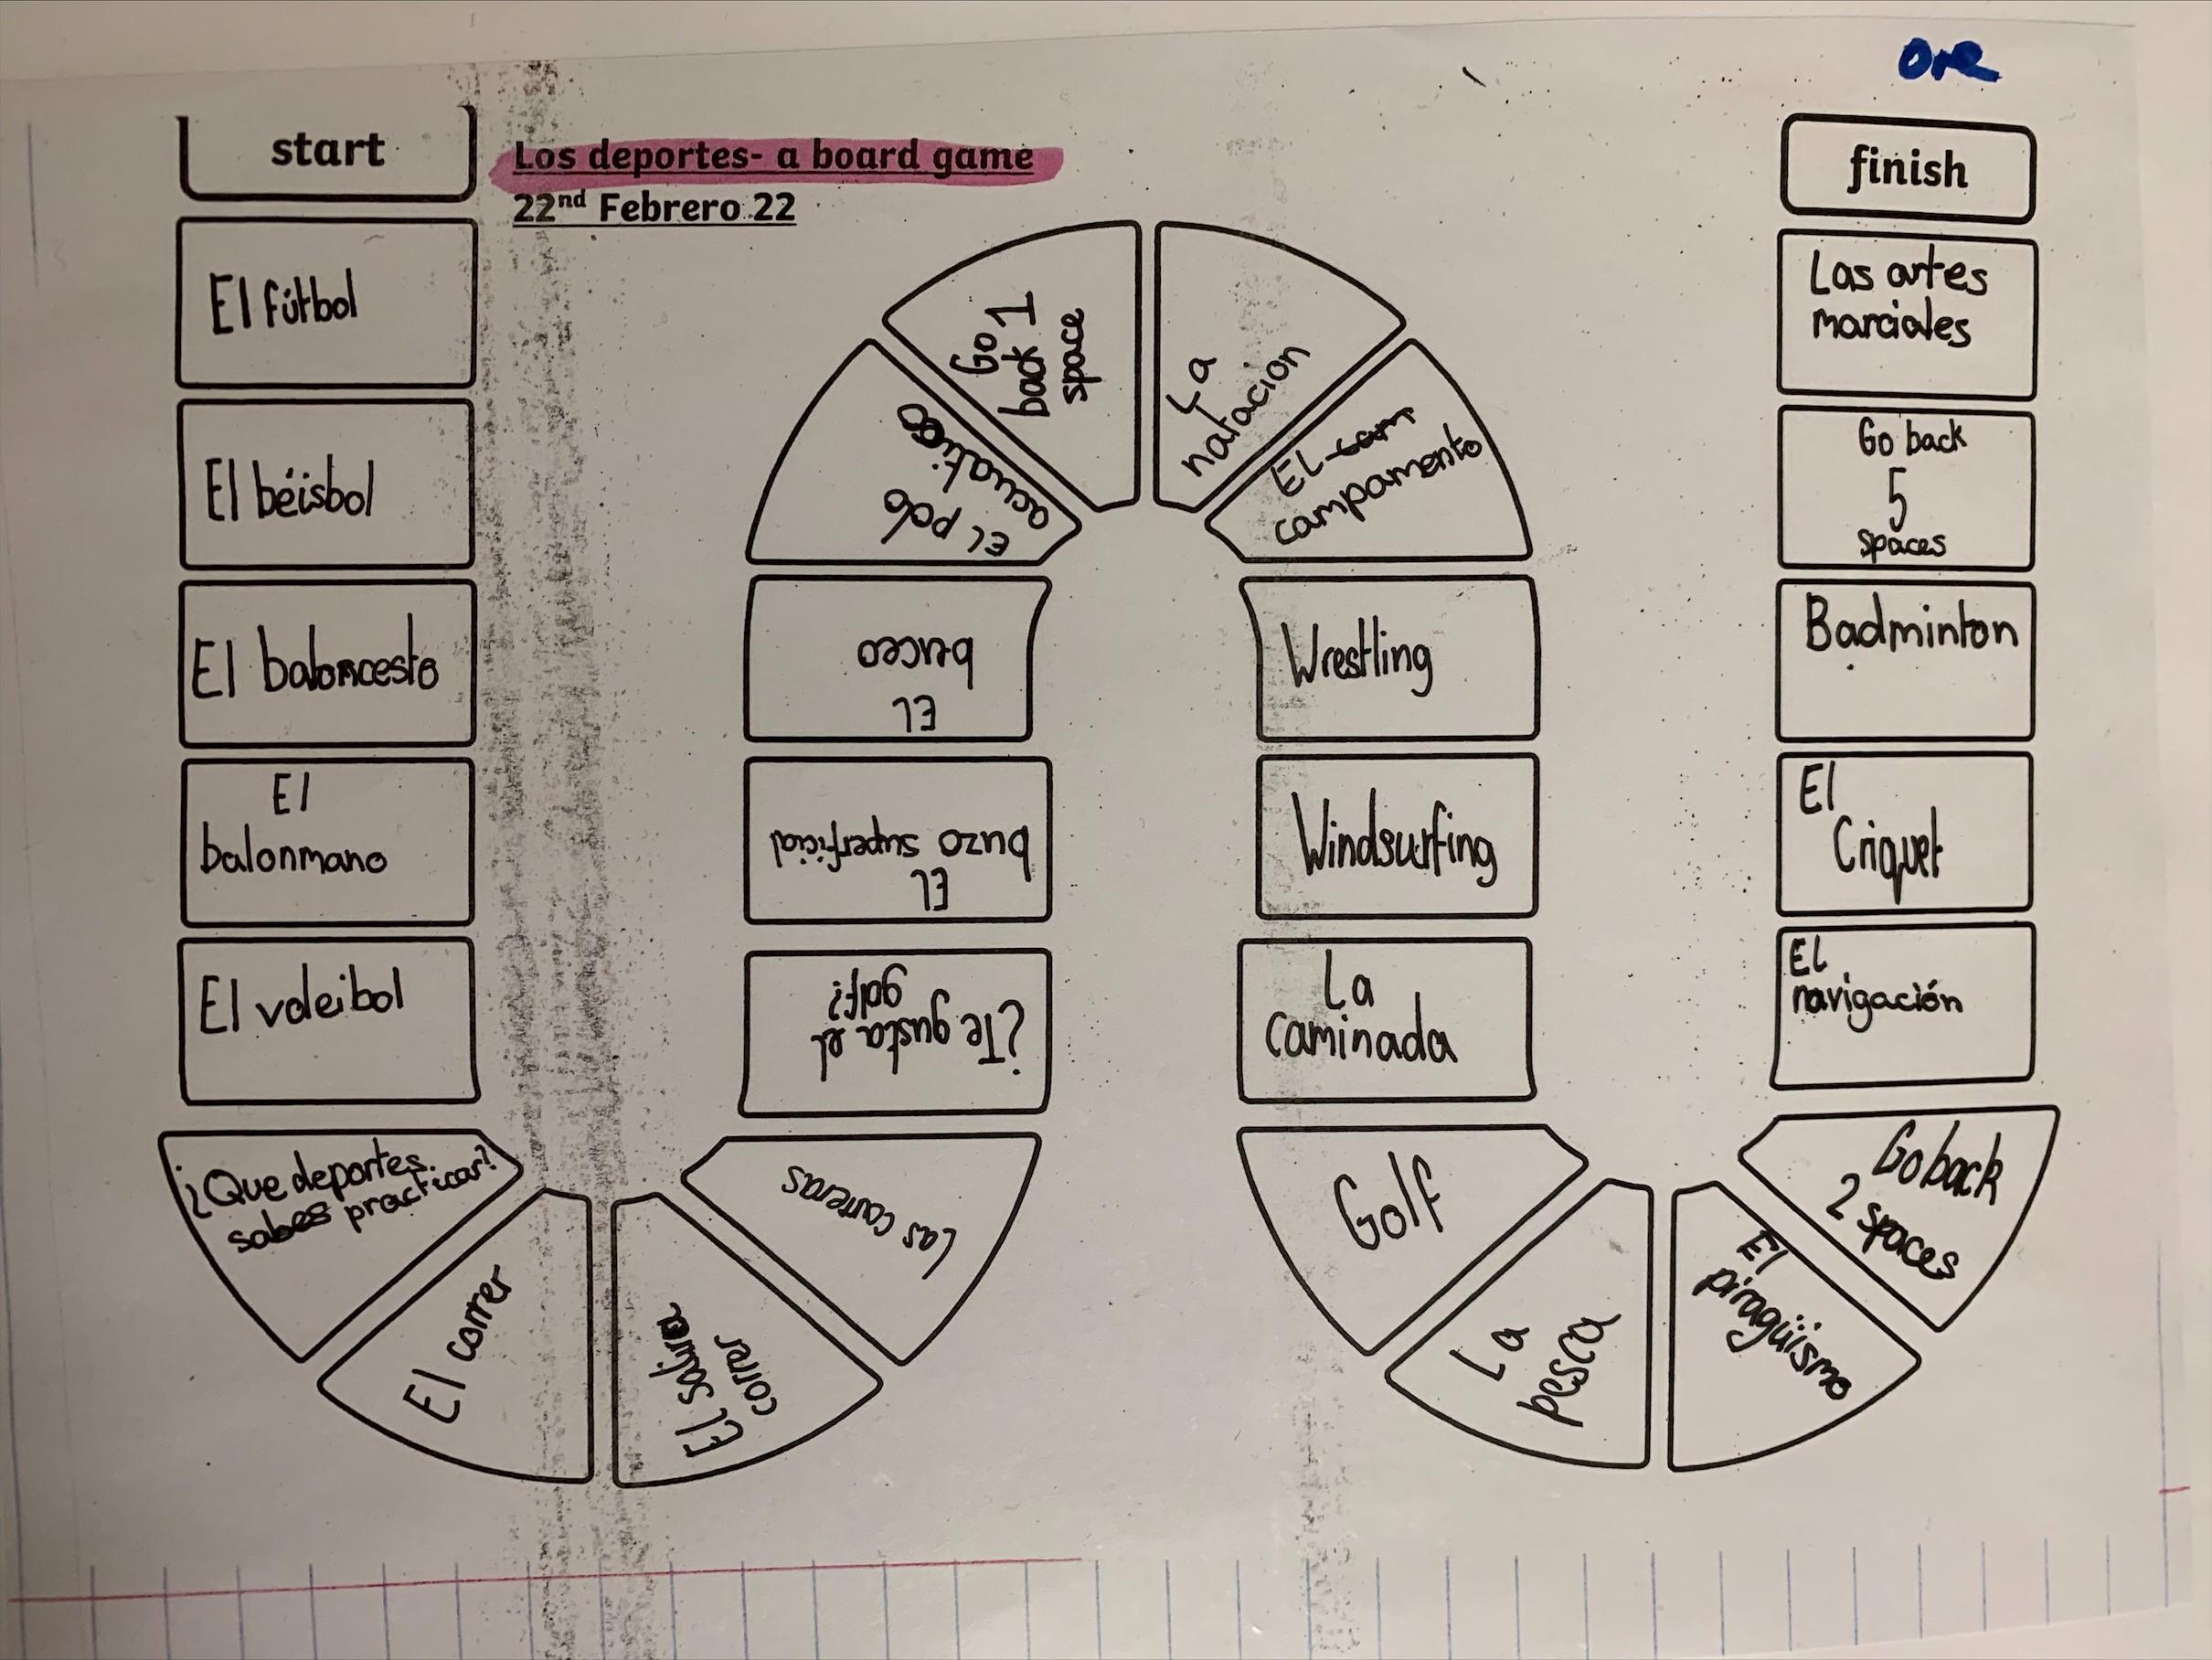 ore
start
Los deportes- a board game
22nd Febrero 22
El fútbol
El béisbol
El baloncesto
El
balonmano
El voleibol
¿Que deportes
sabes practicar?
El correr
El salir a
correr
Las carreras
¿Te gusta el
golf?
EL
buzo superficial
EL
buceo
EL polo
acuatico
Go
back 1
space
La
natacion
EL cam
campamento
Wrestling
Windsurfing
La
caminada
Golf
La
pesca
El
piragüismo
Go back
2 spaces
El
navigación
El
Criquet
Badminton
Go back
5
spaces
Las artes
marciales
finish